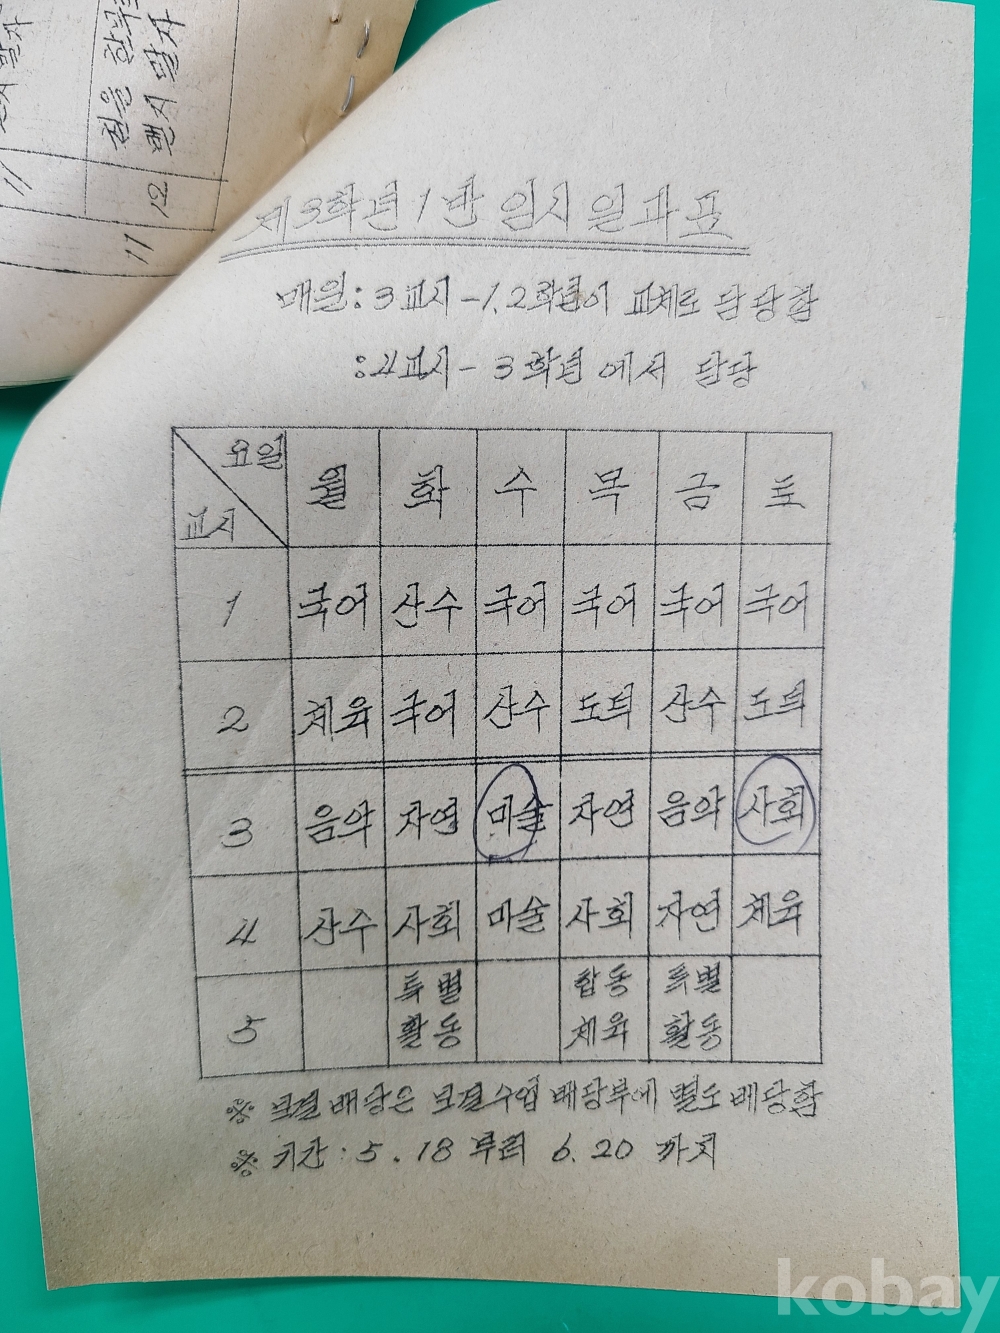 11
점을 찬
맨시 말자
12
11
제3학년 1반 임시 일과표
매일 : 3교시 - 1.2학년이 교체로 담당함
: 4교시 - 3학년에서 담당
요일 월 화 수 목 금 토
교시
1 국어 산수 국어 국어 국어 국어
2 체육 국어 산수 도덕 산수 도덕
3 음악 자연 미술 자연 음악 사회
4 산수 사회 미술 사회 자연 체육
특별 합동 특별
5 활동 체육 활동
※ 보결 배당은 보결수업 배당부에 별도 배당함
※ 기간 : 5.18 부터 6.20 까지
kobay